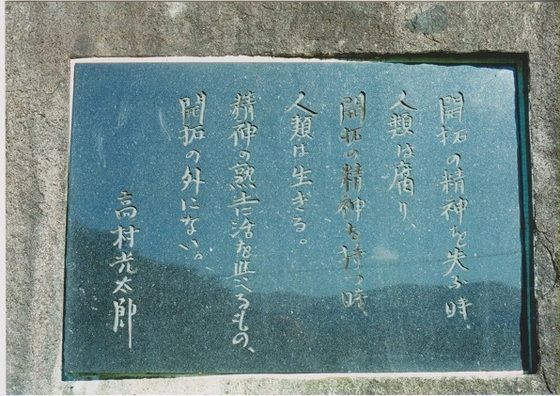 開拓の精神を失ふ時、
人類は腐り、
開拓の精神を持つ時、
人類は生きる。
精神の熱土に活を与へるもの、
開拓の外にない。
高村光太郎